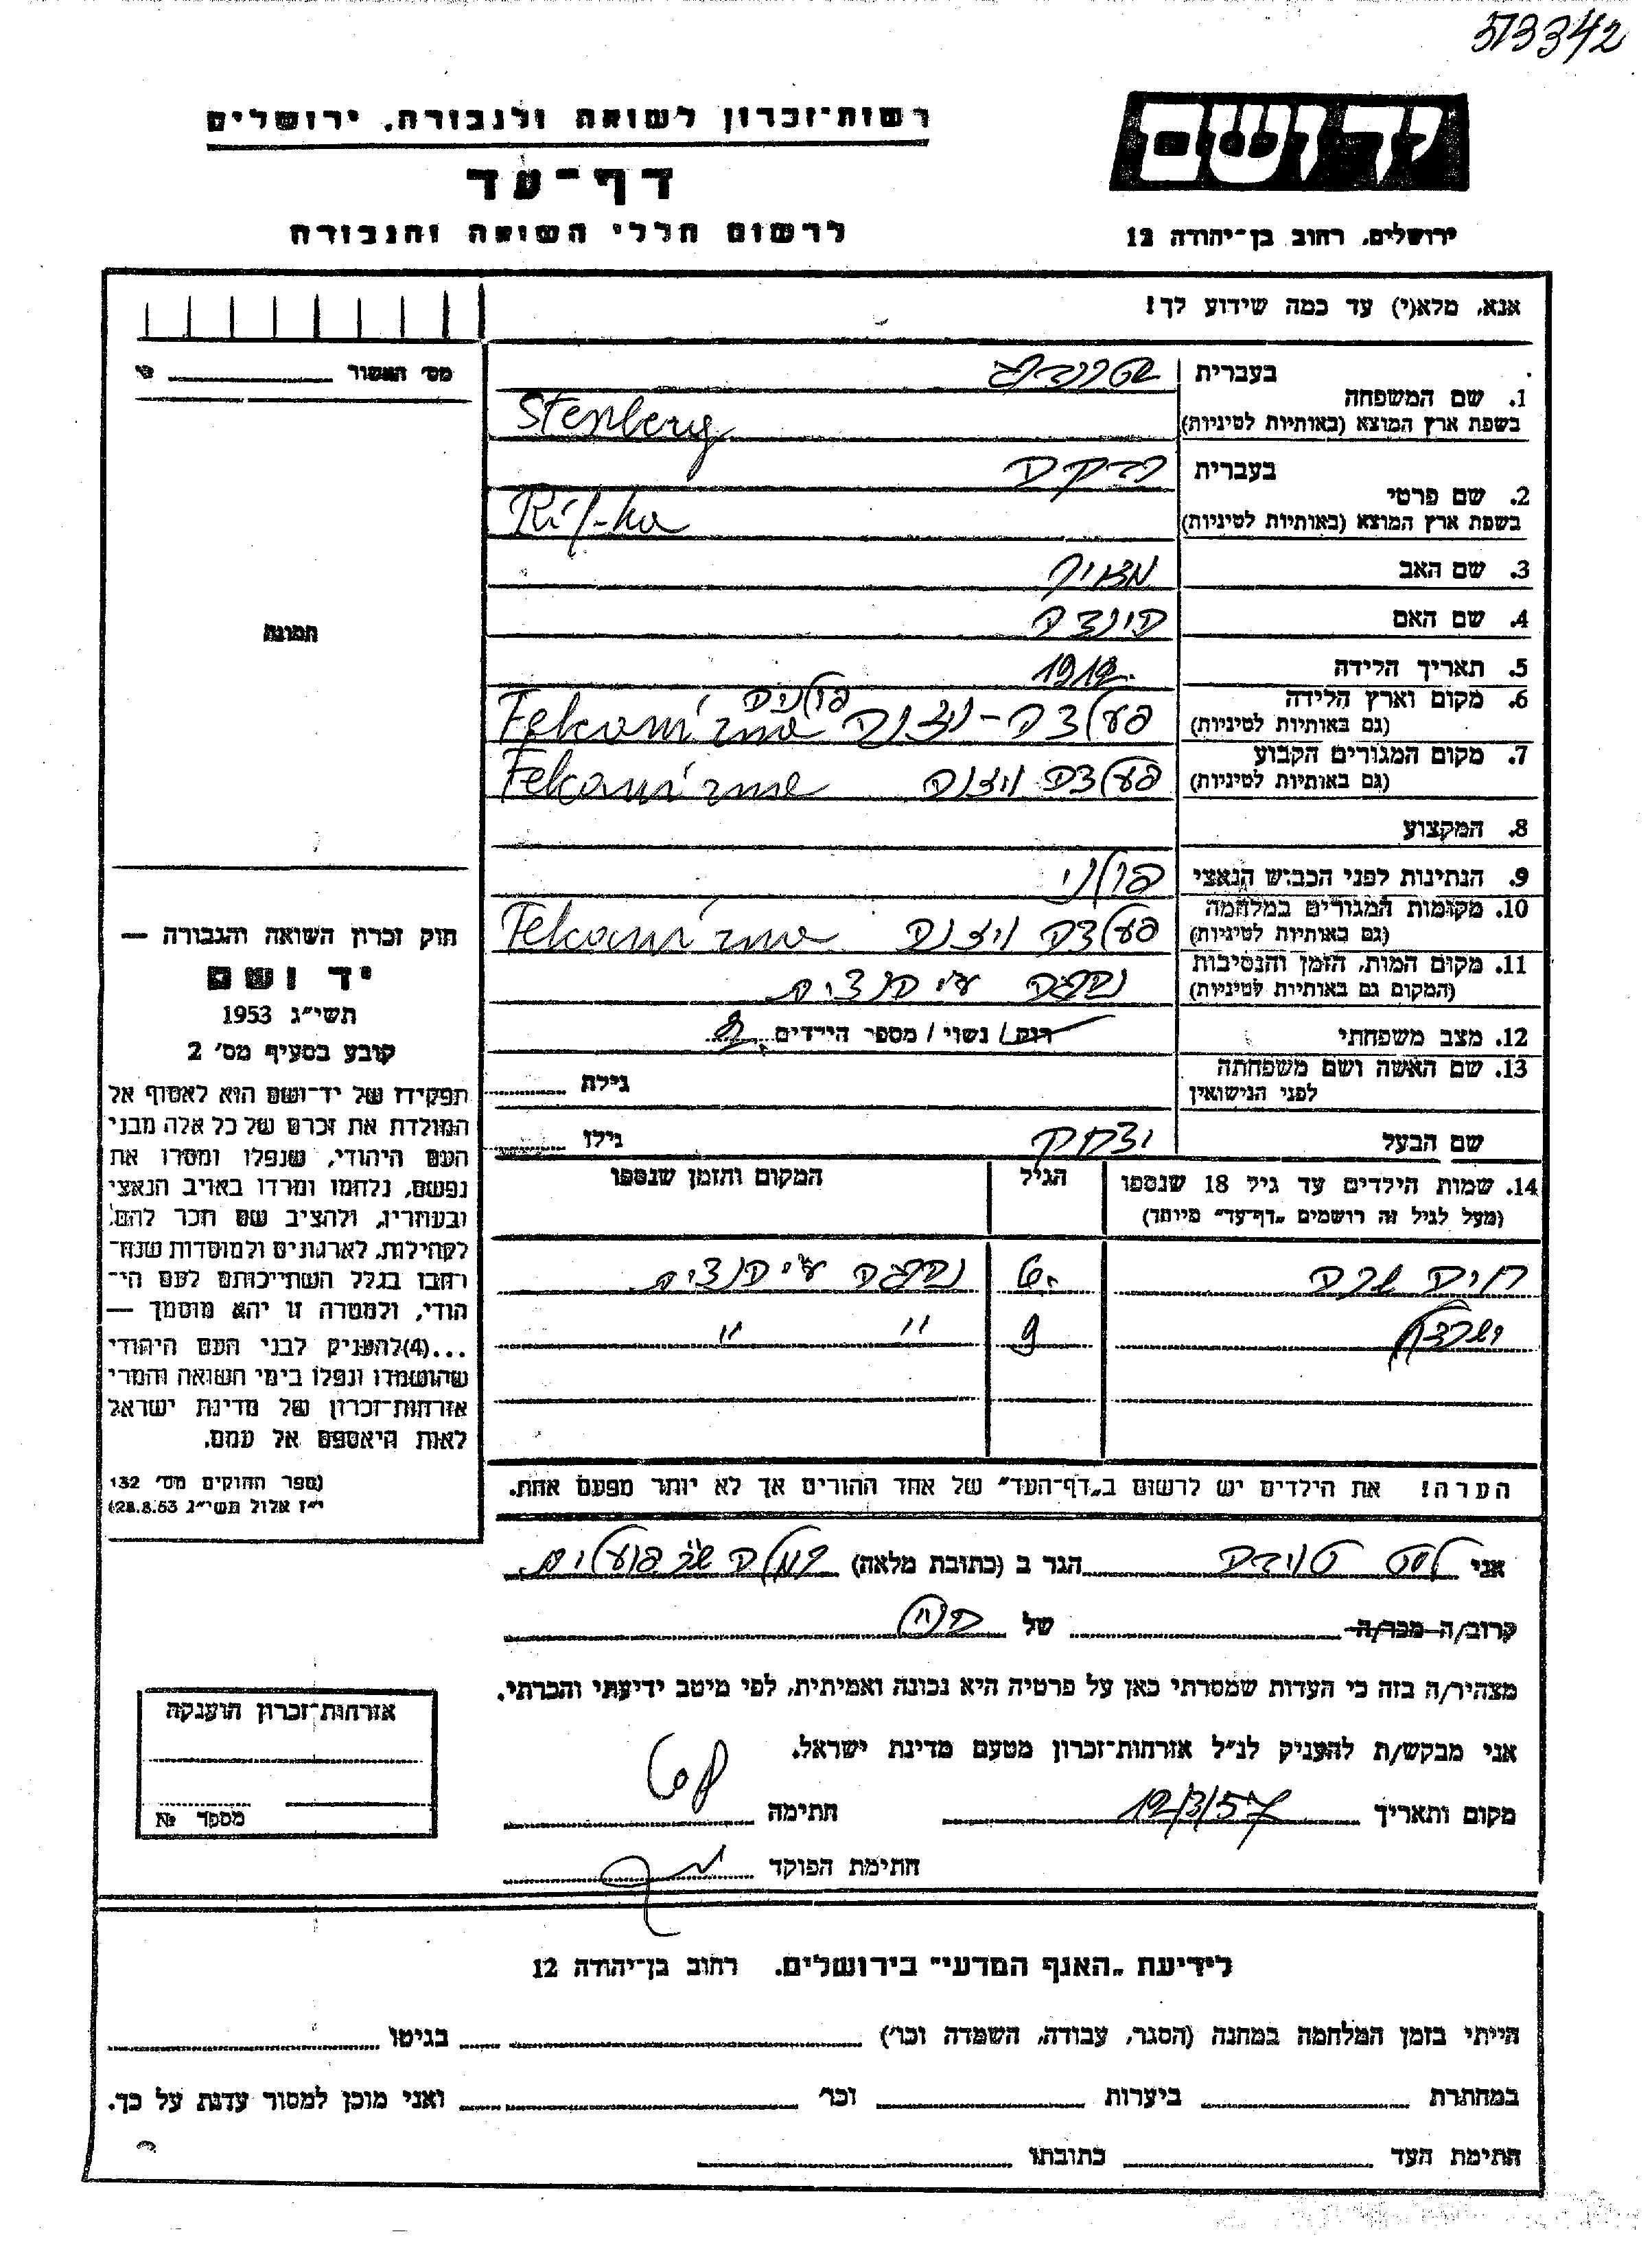 573342
רשות־זכרון לשואה ולגבורה, ירושלים
דף־עד
לרשום חללי השואה והגבורה
יד ושם
ירושלים, רחוב בן־יהודה 12
אנא, מלא(י) עד כמה שידוע לך!
מס׳ האשור
1. שם המשפחה
בעברית
בשפת ארץ המוצא (באותיות לטיניות)
Stenberg
2. שם פרטי
בעברית רבקה
בשפת ארץ המוצא (באותיות לטיניות)
Rifka
3. שם האב
4. שם האם הינדה
5. תאריך הלידה 1912
6. מקום וארץ הלידה
(גם באותיות לטיניות) פולניה
7. מקום המגורים הקבוע
(גם באותיות לטיניות)
8. המקצוע
9. הנתינות לפני הכבוש הנאצי פולני
10. מקומות המגורים במלחמה
(גם באותיות לטיניות)
11. מקום המות, הזמן והנסיבות
(המקום גם באותיות לטיניות) נהרגה ע״י הנאצים
12. מצב משפחתי רוק / נשוי / מספר הילדים 2
13. שם האשה ושם משפחתה
לפני הנישואין
גילה
שם הבעל יצחק גילו
14. שמות הילדים עד גיל 18 שנספו
(מעל לגיל זה רושמים „דף־עד״ מיוחד)
הגיל
המקום והזמן שנספו
חיה שרה 6 נהרגה ע״י הנאצים
9 ״ ״
הערה! את הילדים יש לרשום ב„דף־העד״ של אחד ההורים אך לא יותר מפעם אחת.
תמונה
חוק זכרון השואה והגבורה —
יד ושם
תשי״ג 1953
קובע בסעיף מס׳ 2
תפקידו של יד־ושם הוא לאסוף אל
המולדת את זכרם של כל אלה מבני
העם היהודי, שנפלו ומסרו את
נפשם, נלחמו ומרדו באויב הנאצי
ובעוזריו, ולהציב שם וזכר להם,
לקהילות, לארגונים ולמוסדות שנח־
רבו בגלל השתייכותם לעם הי־
הודי, ולמטרה זו יהא מוסמך —
...(4) להעניק לבני העם היהודי
שהושמדו ונפלו בימי השואה והמרי
אזרחות־זכרון של מדינת ישראל
לאות היאספם אל עמם.
(ספר החוקים מס׳ 132
י״ז אלול תשי״ג 28.8.53)
אני הגר ב (כתובת מלאה) רמלה
קרוב/ה מכר/ה של
מצהיר/ה בזה כי העדות שמסרתי כאן על פרטיה היא נכונה ואמיתית, לפי מיטב ידיעתי והכרתי.
אני מבקש/ת להעניק לנ״ל אזרחות־זכרון מטעם מדינת ישראל.
מקום ותאריך 12/3/57 חתימה
חתימת הפוקד
אזרחות־זכרון הוענקה
מספר №
לידיעת „האגף המדעי״ בירושלים. רחוב בן־יהודה 12
הייתי בזמן המלחמה במחנה (הסגר, עבודה, השמדה וכו׳) בגיטו
במחתרת ביערות וכו׳ ואני מוכן למסור עדות על כך.
חתימת העד כתובתו